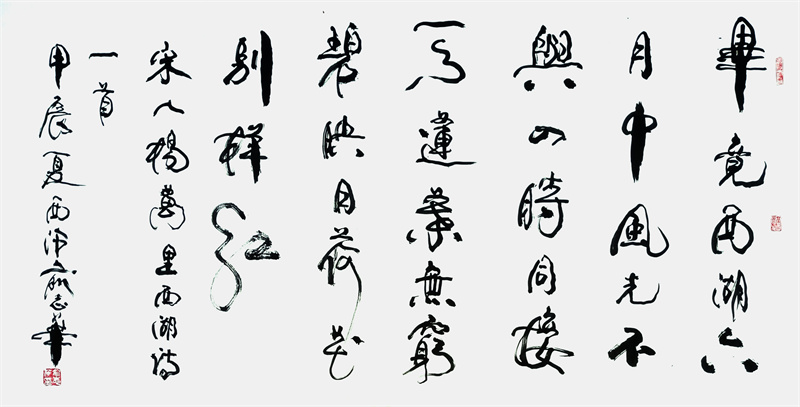 畢竟西湖六
月中風光不
與四時同接
天蓮葉無窮
碧映日荷花
别樣紅
宋人楊萬里西湖詩
一首
甲辰夏西志華